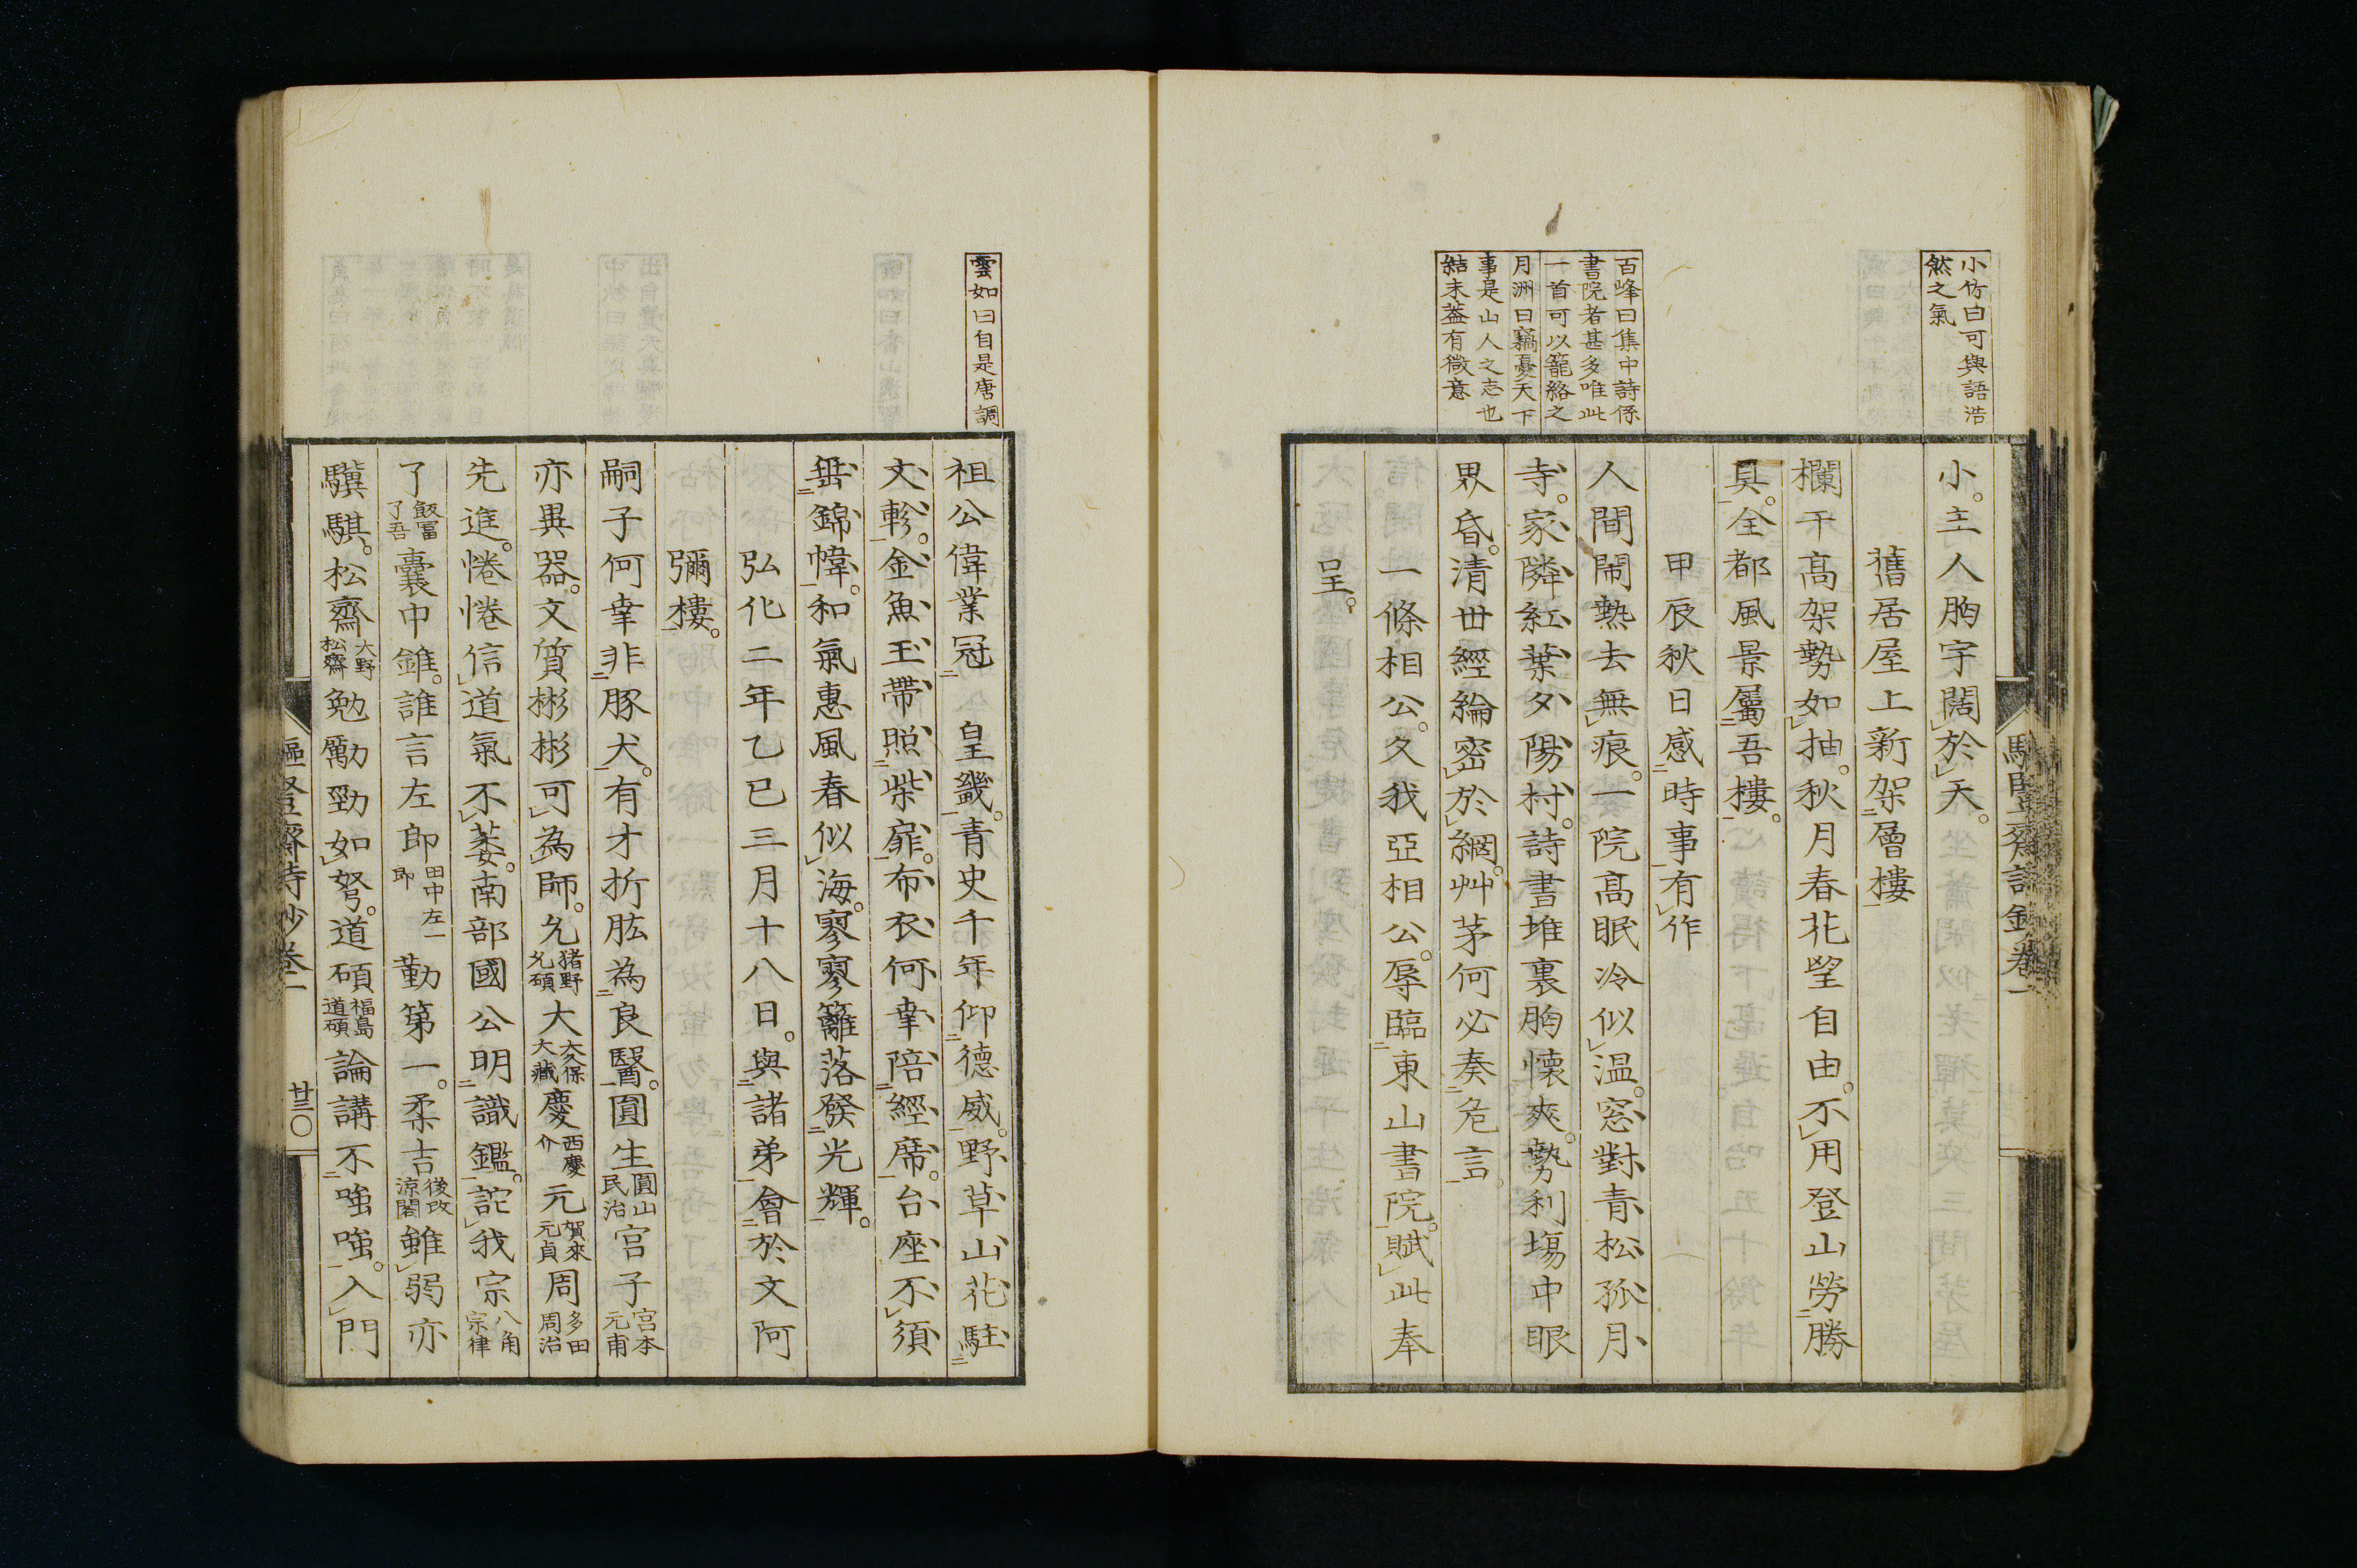 小竹曰可與語浩
然之氣
百峰曰集中詩係
書院者甚多唯此
一首可以籠絡之
月洲曰竊憂天下
事是山人之志也
結末葢有微意
小。主人胸宇闊於天。
舊居屋上新架層樓
欄干高架勢如抽。秋月春花望自由。不用登山勞勝
具。全都風景屬吾樓。
甲辰秋日感時事有作
人間鬧熱去無痕。一院高眠冷似温。窓對青松孤月
寺。家隣紅葉夕陽村。詩書堆裏胸懷爽。勢利場中眼
界昏。清世經綸密於網。艸茅何必奏危言。
一條相公。久我亞相公。辱臨東山書院。賦此奉
呈。
雲如曰自是唐調
祖公偉業冠 皇畿。青史千年仰德威。野草山花駐
文軫。金魚玉帶照柴扉。布衣何幸陪經席。台座不須
垂錦幃。和氣惠風春似海。寥寥籬落發光輝。
弘化二年乙巳三月十八日。與諸弟會於文阿
彌樓。
嗣子何幸非豚犬。有才折肱為良醫。圓生圓山民治宮子宮本元甫
亦異器。文質彬彬可為師。允猪野允碩大大久保大藏慶西慶介元賀來元貞周多田周治
先進。惓惓信道氣不萎。南部國公明識鑑。詫我宗八角宗律
了飯冨了吾囊中錐。誰言左郎田中左一郎勤第一。柔吉後改涼閣雖弱亦
驥騏。松齋大野松齋勉勵勁如弩。道碩福島道碩論講不嗤嗤。入門
廿三〇